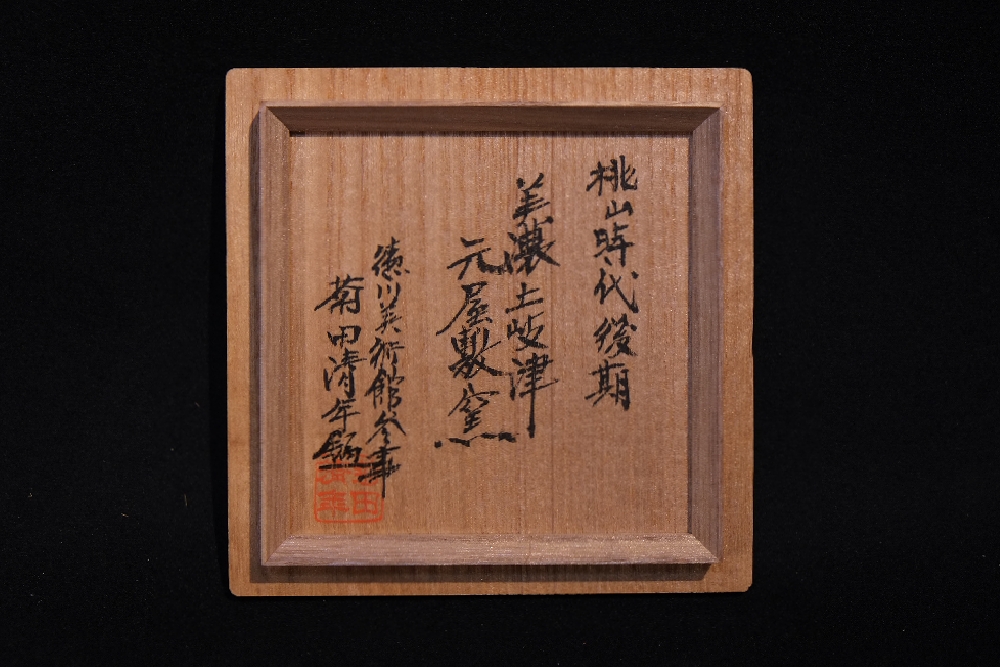 桃山時代後期
美濃土岐津
元屋敷窯
徳川美術館参事
菊田清年鑑